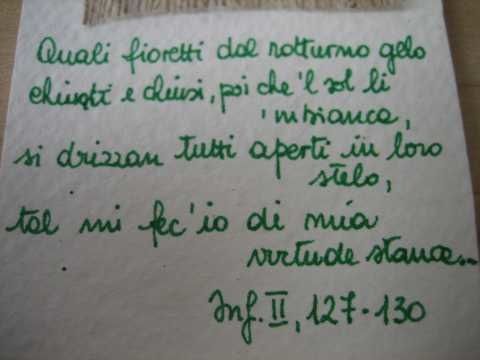 Quali fioretti dal notturno gelo
chinati e chiusi, poi che 'l sol li
'mbianca,
si drizzan tutti aperti in loro
stelo,
tal mi fec'io di mia
virtude stanca...
Inf. II, 127-130